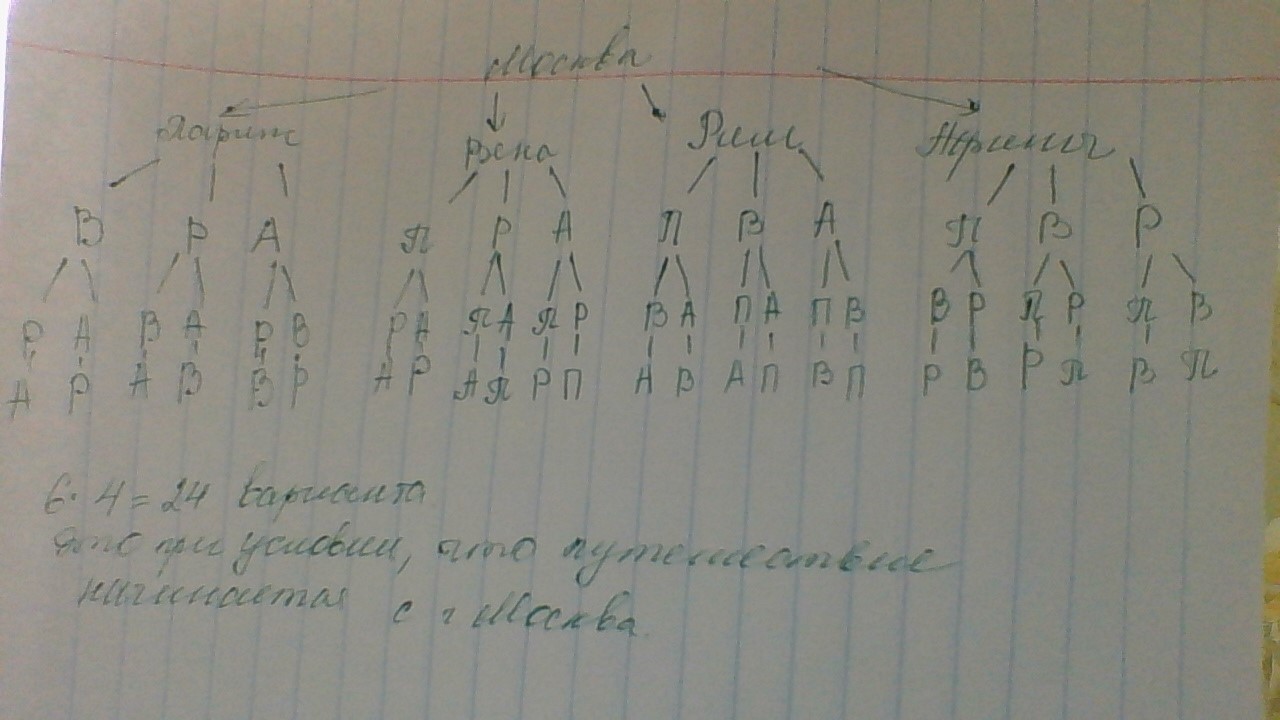 Москва
Париж Вена Рим Афины
В Р А П Р А П В А П В Р
Р А В А Р В Р А П А П Р В А П А П В В Р П Р П В
А Р А В В Р А Р А П Р П А В А П В П Р В Р П В П
6 · 4 = 24 варианта
это при условии, что путешествие
начинается с г Москва.